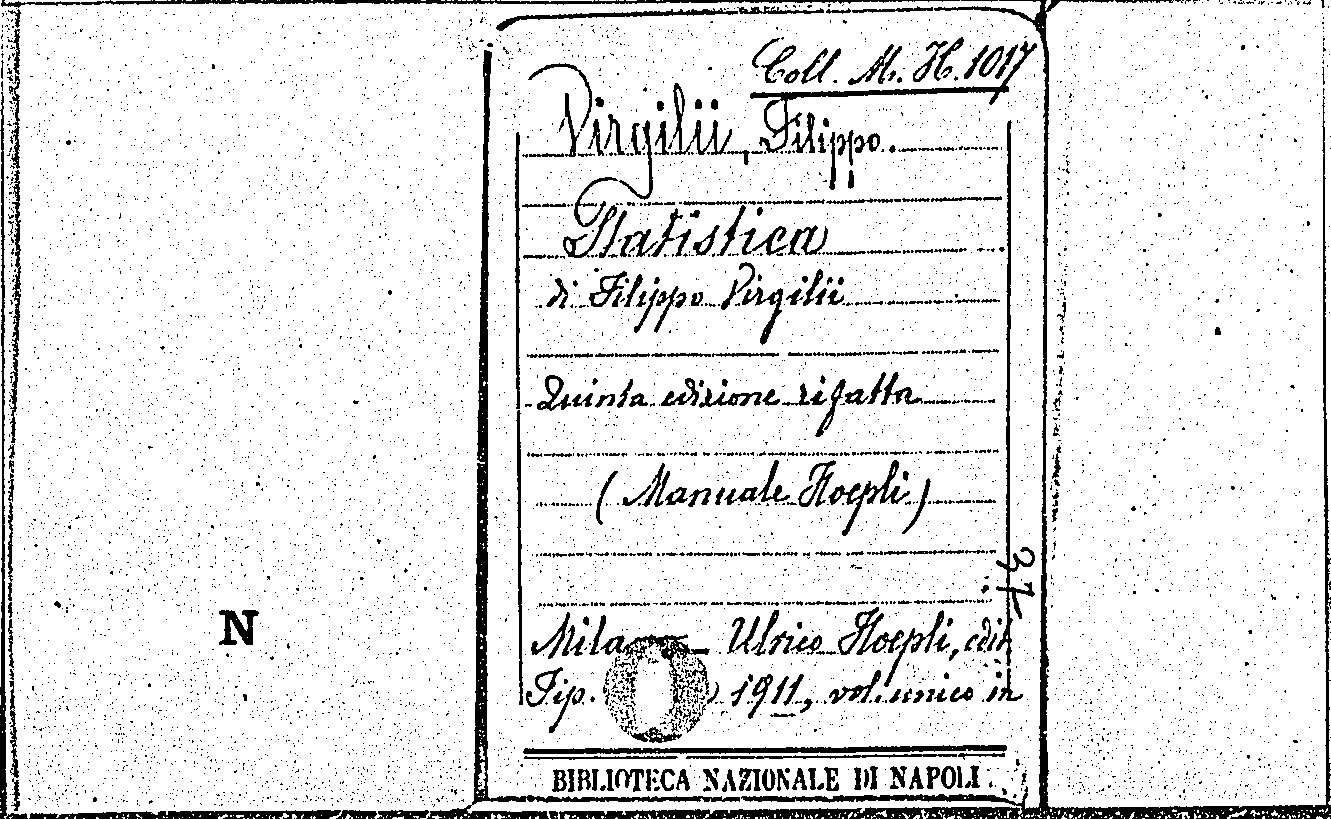 Coll. M. H. 1017
Virgilii, Filippo.
Statistica
di Filippo Virgilii
Quinta edizione rifatta
(Manuale Hoepli)
37
Ulrico Hoepli, edit
N
Tip. 1911, vol. unico in
BIBLIOTECA NAZIONALE DI NAPOLI